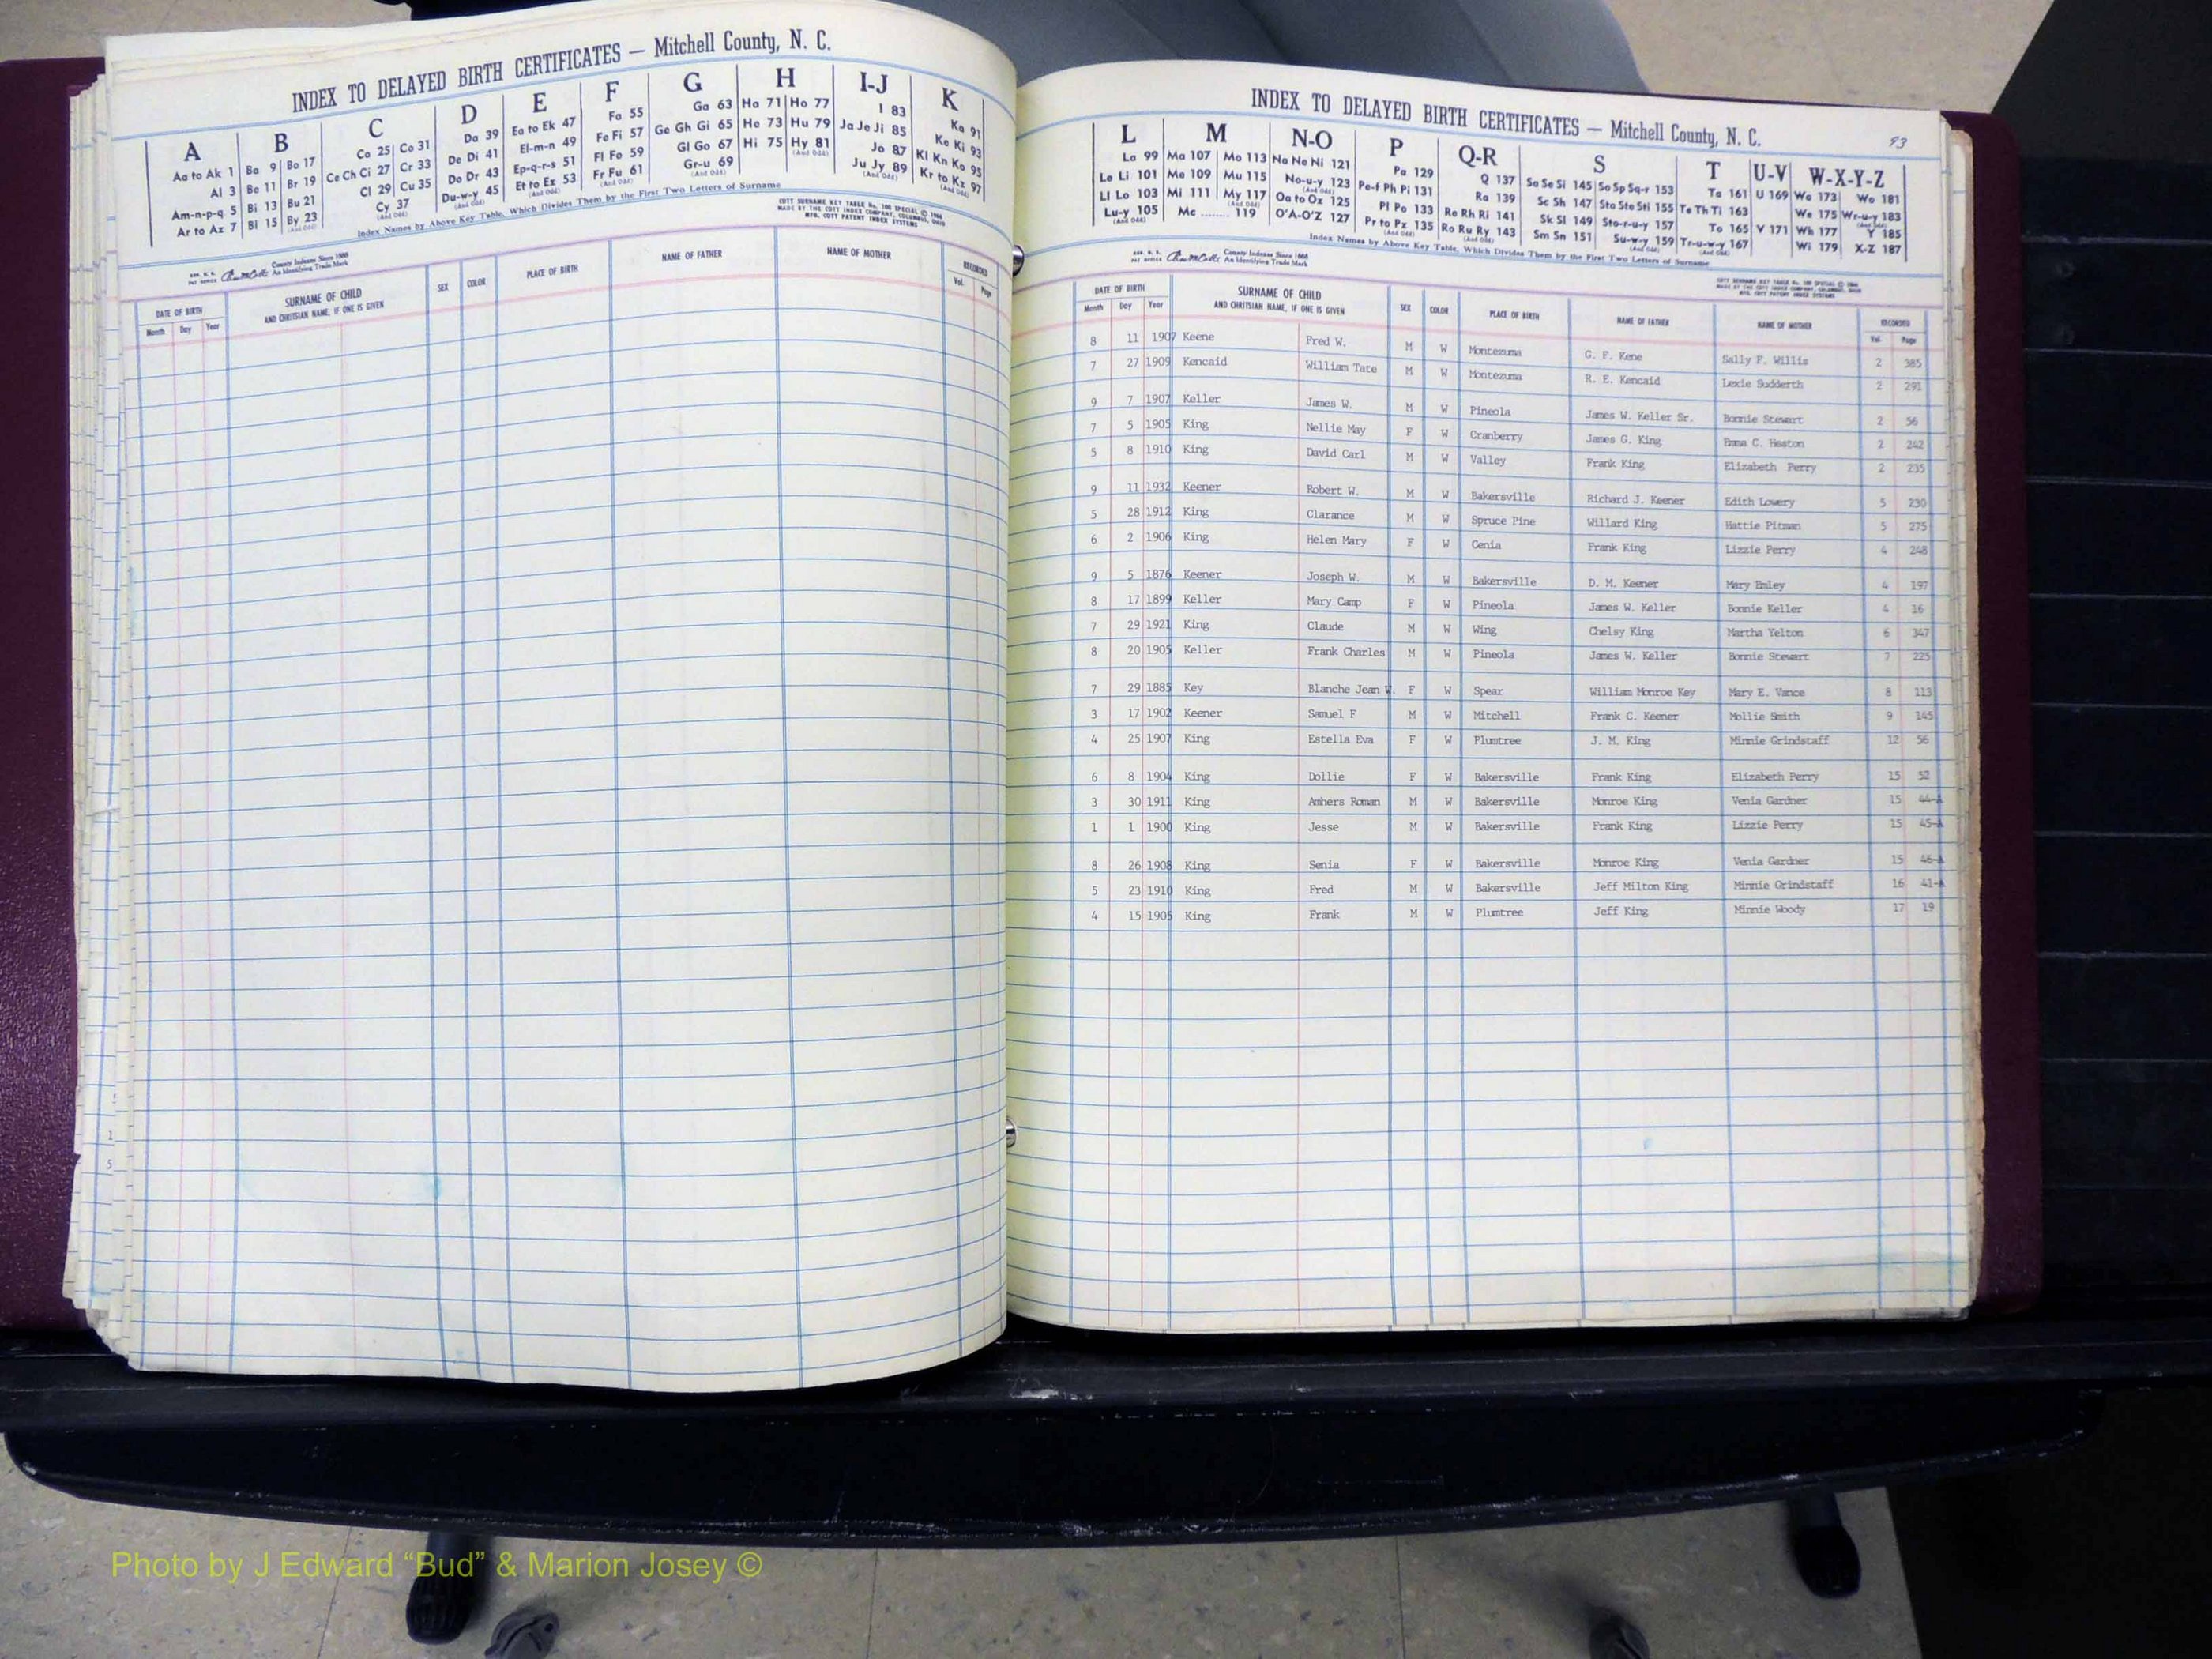 INDEX TO DELAYED BIRTH CERTIFICATES — Mitchell County, N. C.
A B C D E F G H I-J K
Aa to Ak 1 Ba 9 Bo 17 Ca 25 Co 31 Da 39 Ea to Ek 47 Fa 55 Ga 63 Ha 71 Ho 77 I 83 Ka 91
Al 3 Be 11 Br 19 Ce Ch Ci 27 Cr 33 De Di 41 El-m-n 49 Fe Fi 57 Ge Gh Gi 65 He 73 Hu 79 Ja Je Ji 85 Ke Ki 93
Am-n-p-q 5 Bi 13 Bu 21 Cl 29 Cu 35 Do Dr 43 Ep-q-r-s 51 Fl Fo 59 Gl Go 67 Hi 75 Hy 81 (And Odd) Jo 87 Kl Kn Ko 95
Ar to Az 7 Bl 15 By 23 (And Odd) Cy 37 (And Odd) Du-w-y 45 (And Odd) Et to Ex 53 (And Odd) Fr Fu 61 (And Odd) Gr-u 69 (And Odd) Ju Jy 89 (And Odd) Kr to Kz 97 (And Odd)
Index Names by Above Key Table, Which Divides Them by the First Two Letters of Surname
COTT SURNAME KEY TABLE No. 100 SPECIAL © 1966
MADE BY THE COTT INDEX COMPANY, COLUMBUS, OHIO
MFG. COTT PATENT INDEX SYSTEMS
County Indexes Since 1888
An Identifying Trade Mark
DATE OF BIRTH SURNAME OF CHILD SEX COLOR PLACE OF BIRTH NAME OF FATHER NAME OF MOTHER RECORDED
Month Day Year AND CHRITSIAN NAME, IF ONE IS GIVEN Vol. Page
INDEX TO DELAYED BIRTH CERTIFICATES — Mitchell County, N. C.
93
L M N-O P Q-R S T U-V W-X-Y-Z
La 99 Ma 107 Mo 113 Na Ne Ni 121 Pa 129 Q 137 Sa Se Si 145 So Sp Sq-r 153 Ta 161 U 169 Wa 173 Wo 181
Le Li 101 Me 109 Mu 115 No-u-y 123 (And Odd) Pe-f Ph Pi 131 Ra 139 Sc Sh 147 Sta Ste Sti 155 Te Th Ti 163 We 175 Wr-u-y 183 (And Odd)
Ll Lo 103 Mi 111 My 117 (And Odd) Oa to Ox 125 Pl Po 133 Re Rh Ri 141 Sk Sl 149 Sto-r-u-y 157 To 165 V 171 Wh 177 Y 185
Lu-y 105 (And Odd) Mc ........ 119 O'A-O'Z 127 Pr to Pz 135 Ro Ru Ry 143 (And Odd) Sm Sn 151 Su-w-y 159 (And Odd) Tr-u-w-y 167 (And Odd) Wi 179 X-Z 187
Index Names by Above Key Table, Which Divides Them by the First Two Letters of Surname
County Indexes Since 1888
An Identifying Trade Mark
COTT SURNAME KEY TABLE No. 100 SPECIAL © 1966
MADE BY THE COTT INDEX COMPANY, COLUMBUS, OHIO
MFG. COTT PATENT INDEX SYSTEMS
DATE OF BIRTH SURNAME OF CHILD SEX COLOR PLACE OF BIRTH NAME OF FATHER NAME OF MOTHER RECORDED
Month Day Year AND CHRITSIAN NAME, IF ONE IS GIVEN Vol. Page
8 11 1907 Keene Fred W. M W Montezuma G. F. Kene Sally F. Willis 2 385
7 27 1909 Kencaid William Tate M W Montezuma R. E. Kencaid Lexie Sudderth 2 291
9 7 1907 Keller James W. M W Pineola James W. Keller Sr. Bonnie Stewart 2 56
7 5 1905 King Nellie May F W Cranberry James G. King Emma C. Heaton 2 242
5 8 1910 King David Carl M W Valley Frank King Elizabeth Perry 2 235
9 11 1932 Keener Robert W. M W Bakersville Richard J. Keener Edith Lowery 5 230
5 28 1912 King Clarance M W Spruce Pine Willard King Hattie Pitman 5 275
6 2 1906 King Helen Mary F W Cenia Frank King Lizzie Perry 4 248
9 5 1876 Keener Joseph W. M W Bakersville D. M. Keener Mary Emley 4 197
8 17 1899 Keller Mary Camp F W Pineola James W. Keller Bonnie Keller 4 16
7 29 1921 King Claude M W Wing Chelsy King Martha Yelton 6 347
8 20 1905 Keller Frank Charles M W Pineola James W. Keller Bonnie Stewart 7 225
7 29 1885 Key Blanche Jean W. F W Spear William Monroe Key Mary E. Vance 8 113
3 17 1902 Keener Samuel F M W Mitchell Frank C. Keener Mollie Smith 9 145
4 25 1907 King Estella Eva F W Plumtree J. M. King Minnie Grindstaff 12 56
6 8 1904 King Dollie F W Bakersville Frank King Elizabeth Perry 15 52
3 30 1911 King Amhers Roman M W Bakersville Monroe King Venia Gardner 15 44-A
1 1 1900 King Jesse M W Bakersville Frank King Lizzie Perry 15 45-A
8 26 1908 King Senia F W Bakersville Monroe King Venia Gardner 15 46-A
5 23 1910 King Fred M W Bakersville Jeff Milton King Minnie Grindstaff 16 41-A
4 15 1905 King Frank M W Plumtree Jeff King Minnie Woody 17 19
Photo by J Edward “Bud” & Marion Josey ©